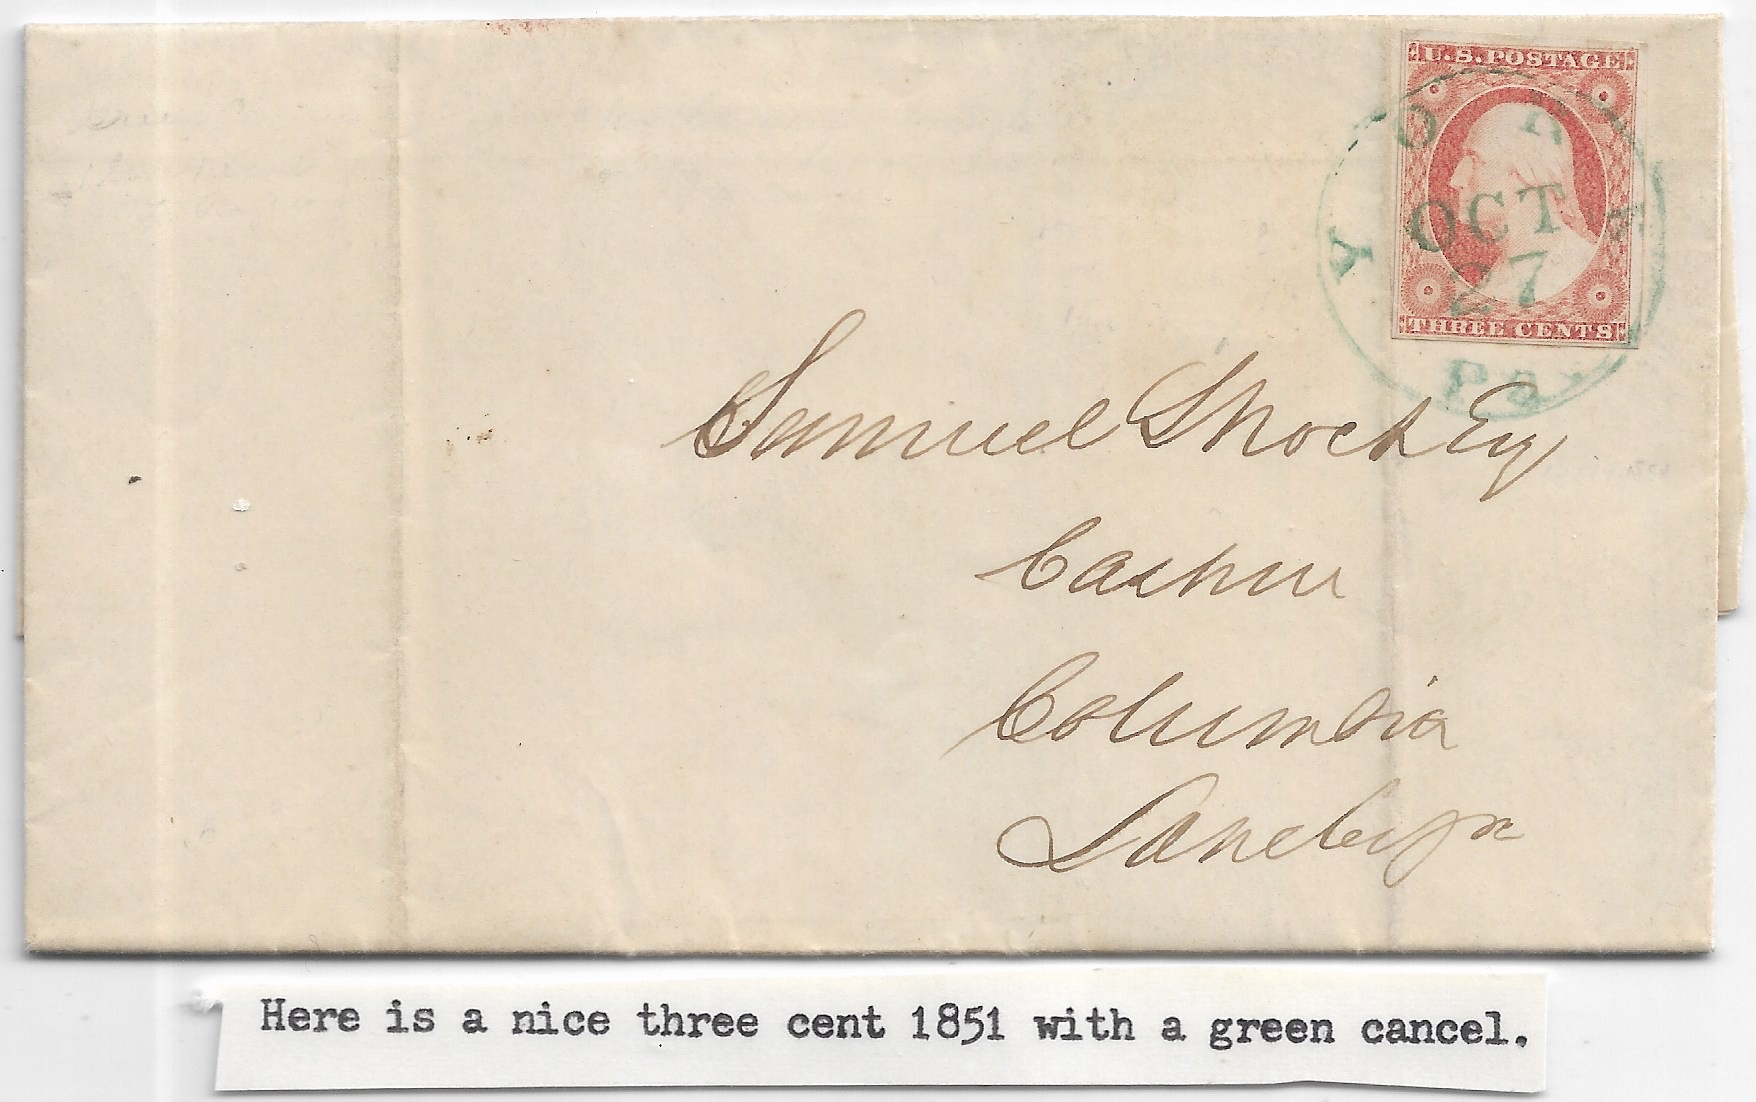 U.S. POSTAGE
YORK
OCT
27
Pa
THREE CENTS
Samuel Shock Esq
Cashier
Columbia
Lanc
Here is a nice three cent 1851 with a green cancel.